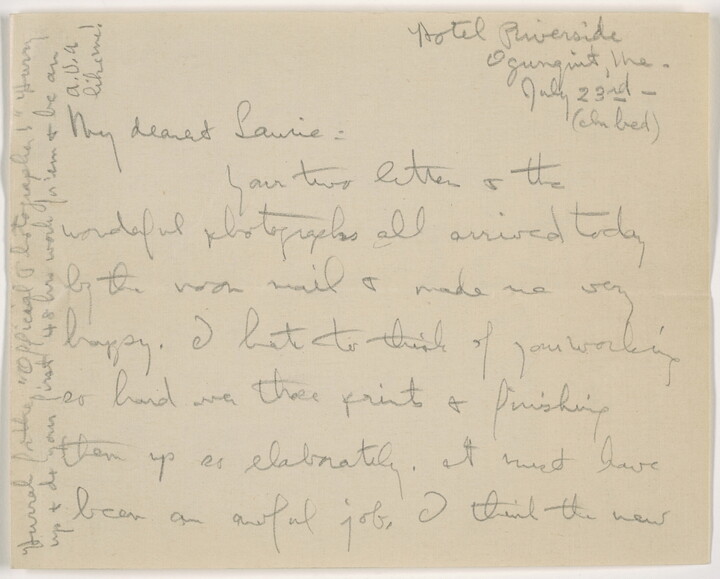 Hotel Riverside
Ogunquit, Me.
July 23rd –
(in bed)
My dearest Laurie:
Your two letters & the
wonderful photographs all arrived today
by the noon mail & made me very
happy. I hate to think of your working
so hard over those prints & finishing
them up so elaborately. It must have
been an awful job. I think the new
Hurrah for the "Official Photographer!" Hurry
up & do your first 48 hrs work for 'em & be an
a.v.a
like me!